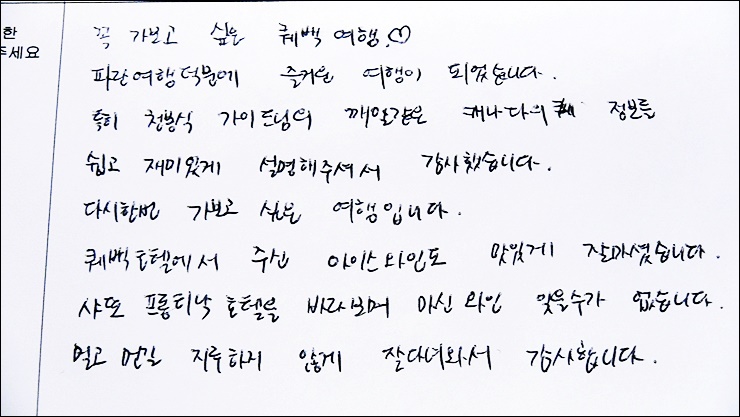 한
주세요
꼭 가보고 싶은 퀘백 여행.♡
파란여행덕분에 즐거운 여행이 되었습니다.
특히 천봉식 가이드님의 깨알같은 캐나다의 정보를
쉽고 재미있게 설명해주셔서 감사했습니다.
다시한번 가보고 싶은 여행입니다.
퀘백호텔에서 주신 아이스와인도 맛있게 잘마셨습니다.
샤또 프롱티낙 호텔을 바라보며 마신 와인 잊을수가 없습니다.
멀고 먼길 지루하지 않게 잘다녀와서 감사합니다.